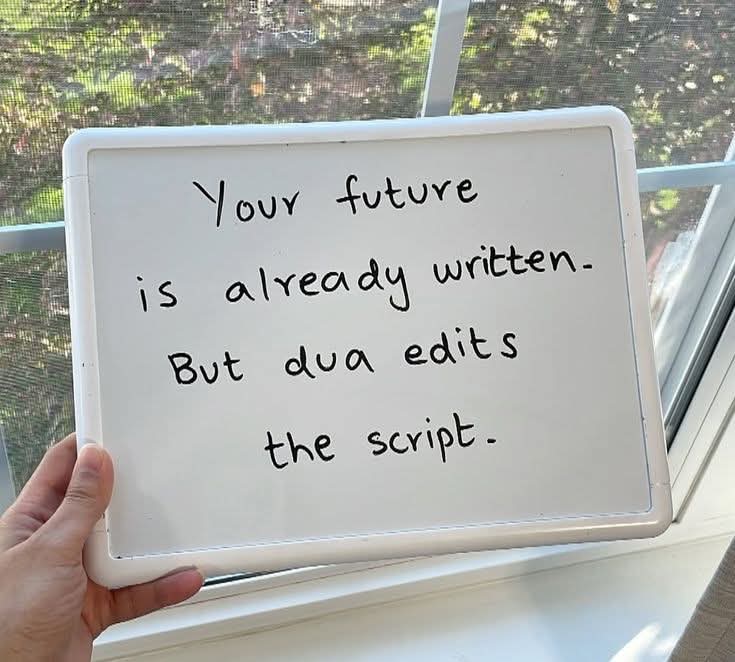 Your future
is already written.
But dua edits
the script.